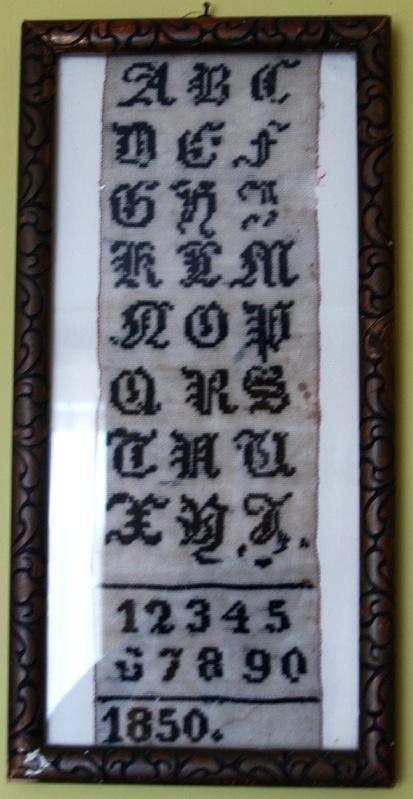 A B C
D E F
G H I
K L M
N O P
Q R S
T U V
X Y Z.
1 2 3 4 5
6 7 8 9 0
1850.